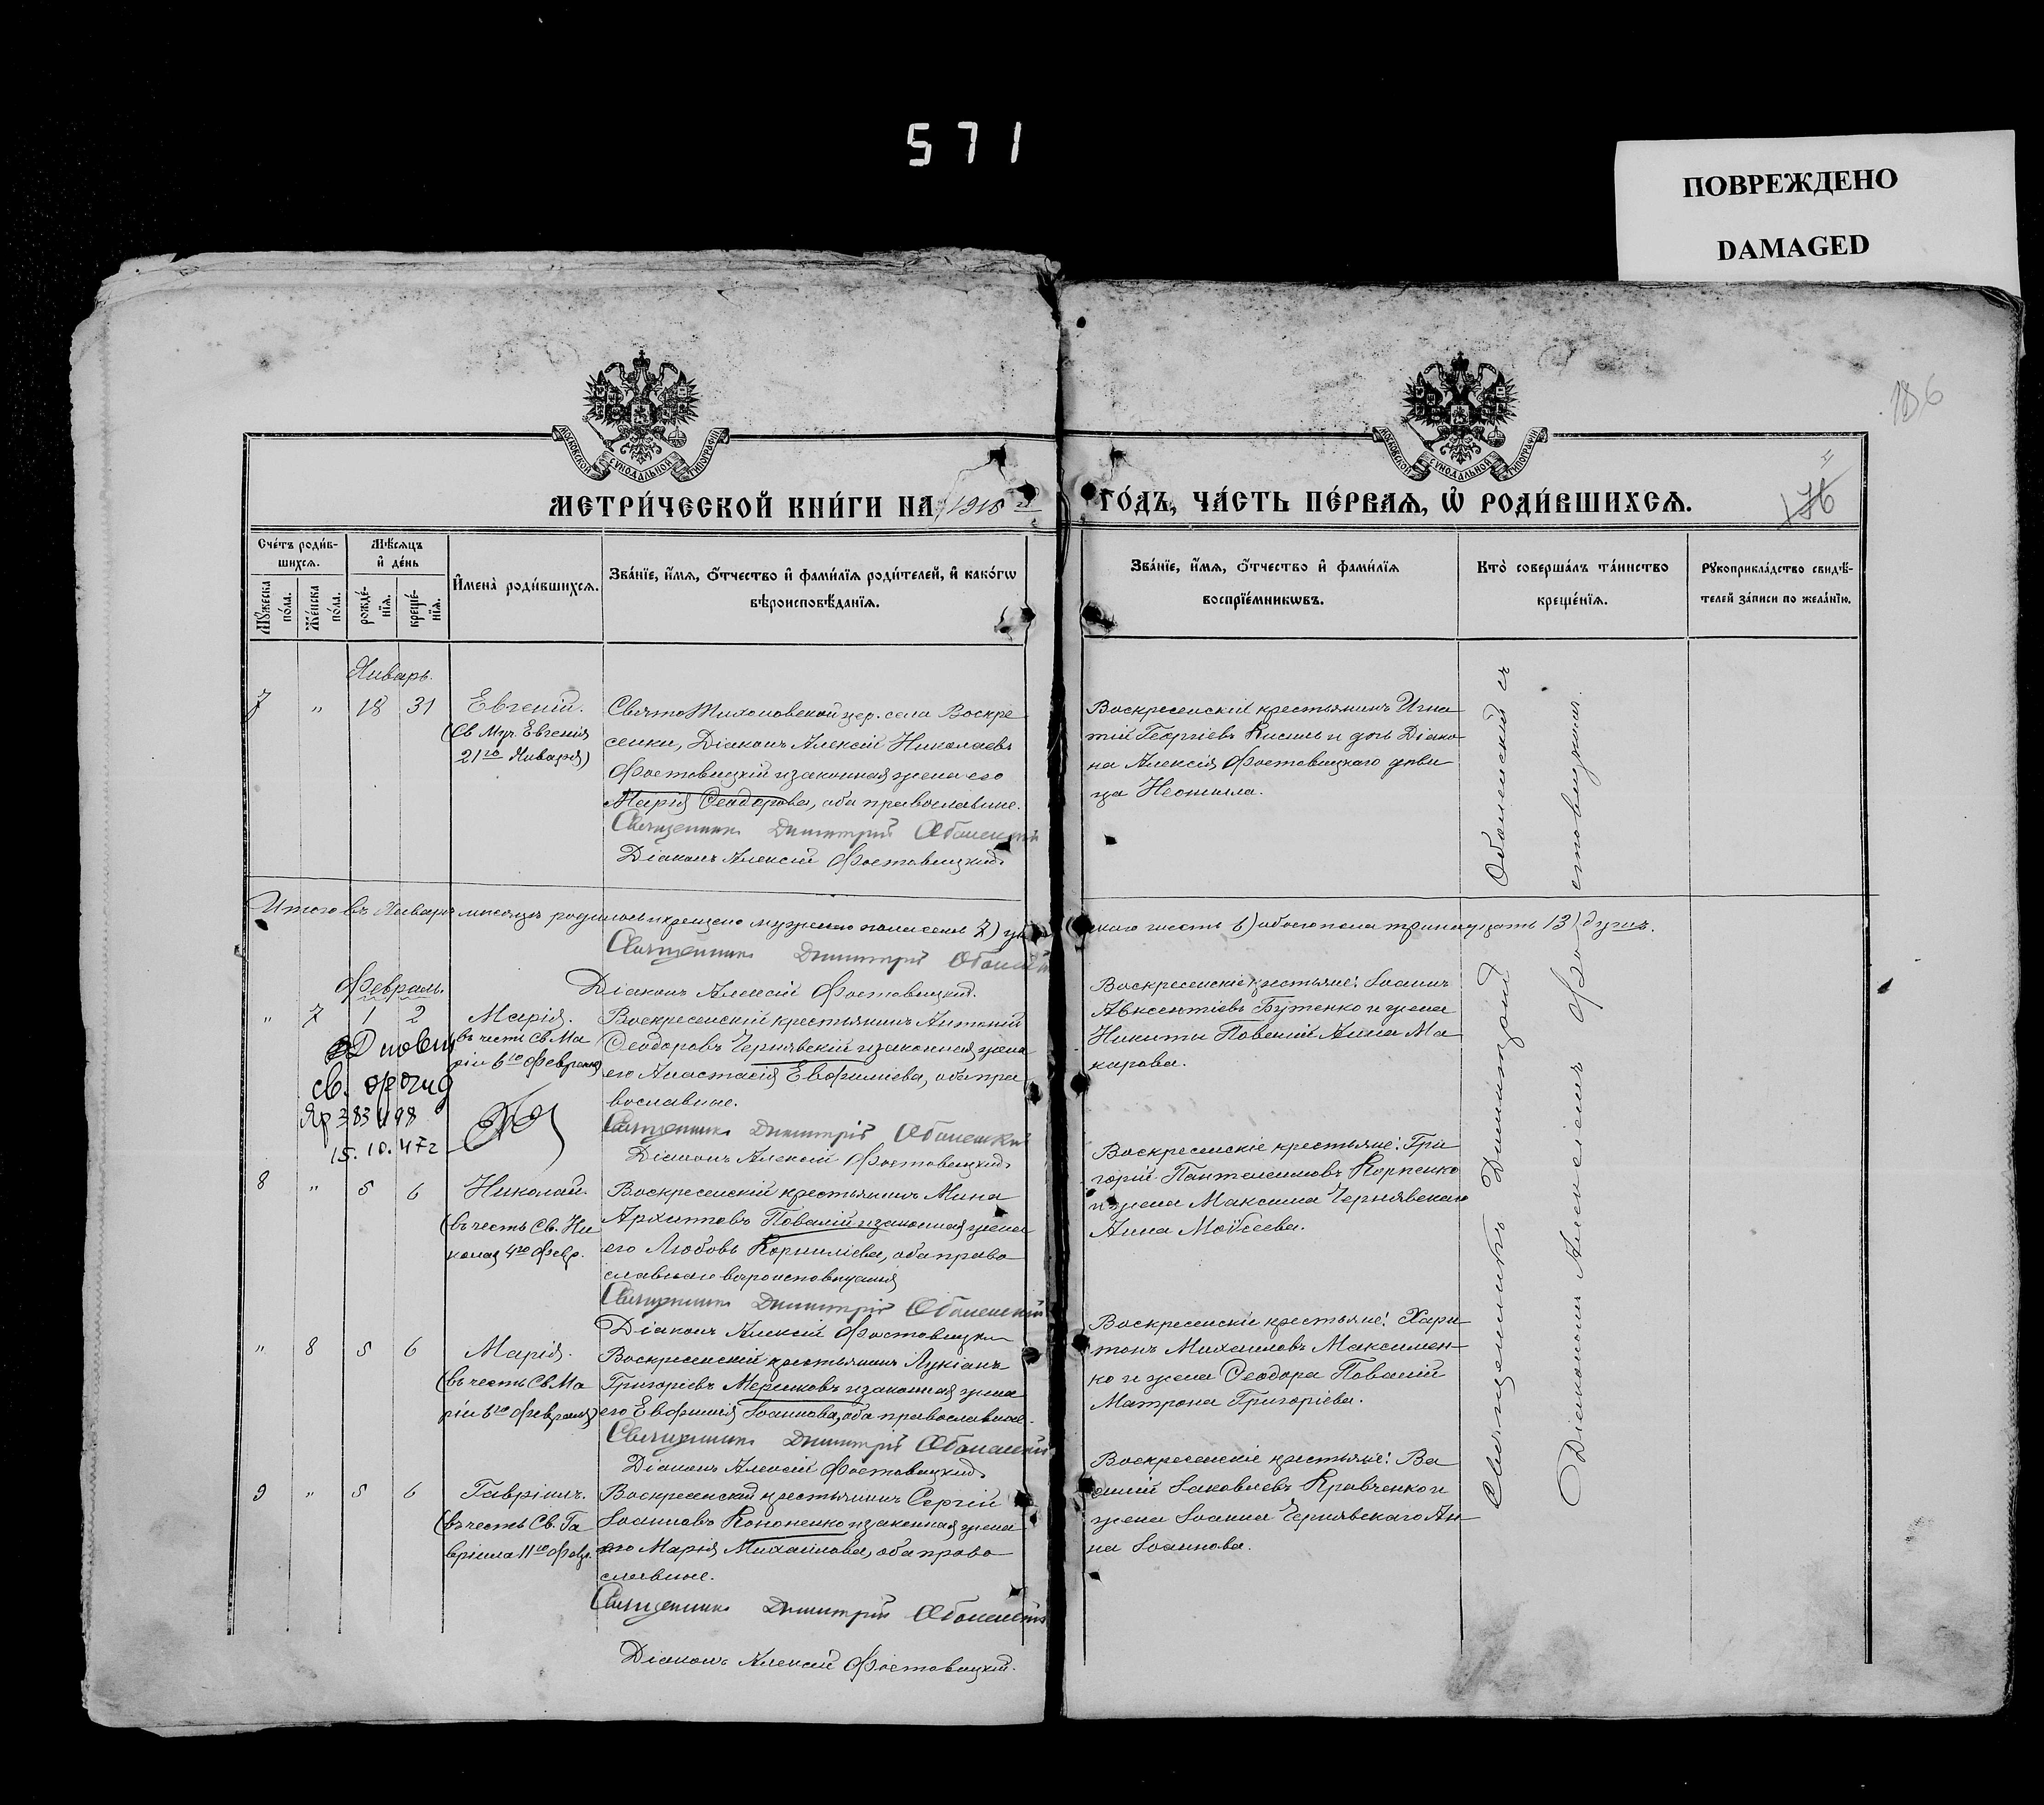 571
ПОВРЕЖДЕНО
DAMAGED
186
МОСКОВСКОЙ СѴНОДАЛЬНОЙ ТИПОГРАФІИ
МОСКОВСКОЙ СѴНОДАЛЬНОЙ ТИПОГРАФІИ
176
МЕТРИ́ЧЕСКОЙ КНИ́ГИ НА 1918 ГО́ДЪ, ЧА́СТЬ ПЕ́РВАѦ, Ѽ РОДИ́ВШИХСѦ.
Сче́тъ роди́в-
шихсѧ.
Мꙋ́жеска по́ла.
Же́нска по́ла.
Мѣ́сѧцъ
и҆ де́нь
рожде́-
нїѧ.
креще́-
нїѧ.
И҆мена̀ роди́вшихсѧ.
Зва́нїе, и҆́мѧ, ѻ҆́тчество и҆ фами́лїѧ роди́телей, и҆ како́гѡ
вѣроисповѣ́данїѧ.
Зва́нїе, и҆́мѧ, ѻ҆́тчество и҆ фами́лїѧ
воспрїе́мникѡвъ.
Кто̀ соверша́лъ та́инство
креще́нїѧ.
Рꙋкоприкла́дство свидѣ́-
телей за́писи по жела́нїю.
Январь.
7 " 18 31 Евгеній.
(Св Муч. Евгенія
21го Января)
Свято Тихоновской цер. села Воскре
сенки, Діаконъ Алексій Николаевъ
Фостовицкій и законная жена его
Марія Ѳеодорова, оба православные.
Священникъ Димитрій Оболенскій
Діаконъ Алексій Фостовицкій.
Воскресенскій крестьянинъ Игна
тій Георгіевъ Кисиль и дочь Діако
на Алексія Фостовицкаго деви
ца Неонила.
Итого въ Январѣ мѣсяцѣ родилось и крещено мужеска пола семь 7)
ского шесть 6) обоего пола тринадцать 13) душъ.
Священникъ Димитрій Оболенскій
Діаконъ Алексій Фостовицкій.
Февраль.
" 7 1 2 Марія.
въ честь Св Ма
ріи 6го Февраля)
Воскресенскій крестьянинъ Антоній
Ѳеодоровъ Чернявскій и законная жена
его Анастасія Евфиміева, оба пра
вославные.
Священникъ Димитрій Оболенскій
Діаконъ Алексій Фостовицкій.
св.
15.10.47г
Воскресенскіе крестьяне: Іоаннъ
Авксентіевъ Бутенко и жена
Никиты Повалій Анна Ма
карова.
8 " 5 6 Николай.
(въ честь Св. Ни
колая 4го Февр.
Воскресенскій крестьянинъ Мина
Архиповъ Повалій и законная жена
его Любовь Корниліева, оба право
славнаго вѣроисповѣданія
Священникъ Димитрій Оболенскій
Діаконъ Алексій Фостовицкій
Воскресенскіе крестьяне: Гри
горій Пантелеимовъ Корпенко
и жена Максима Чернявскаго
Анна Моѵсеева.
" 8 5 6 Марія.
(въ честь Св Ма
ріи 6го Февраля)
Воскресенскій крестьянинъ Лукіанъ
Григоріевъ Меринковъ и законная жена
его Евфимія Іоаннова, оба православные.
Священникъ Димитрій Оболенскій
Діаконъ Алексій Фостовицкій.
Воскресенскіе крестьяне: Хари
тонъ Михаиловъ Максимен
ко и жена Ѳеодора Повалій
Матрона Григоріева.
9 " 5 6 Гавріилъ.
(въ честь Св. Га
вріила 11го Февр.
Воскресенскій крестьянинъ Сергій
Іоанновъ Кононенко и законная жена
его Марія Михайлова, оба право
славные.
Священникъ Димитрій Оболенскій
Діаконъ Алексій Фостовицкій.
Воскресенскіе крестьяне: Ва
силій Іаковлевъ Кравченко и
жена Іоанна Чернявскаго Ан
на Іоаннова.
Священникъ Димитрій Оболенскій съ
Діакономъ Алексіемъ Фостовицкимъ.